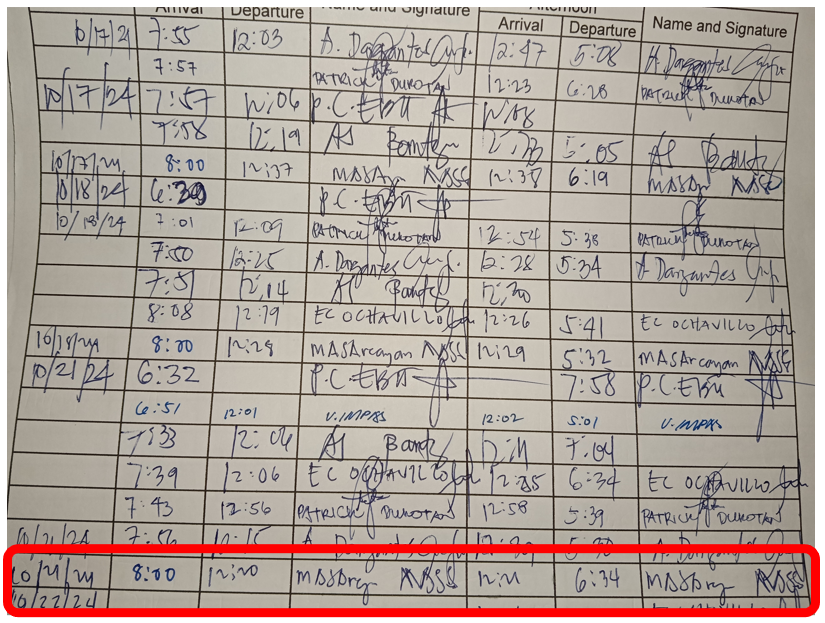 Arrival Departure Name and Signature Afternoon
Arrival Departure Name and Signature
10/17/24 7:55 12:03 A. Dargantes 12:47 5:08 A. Dargantes
7:57 PATRICK DUKOTAN 12:23 6:28 PATRICK DUKOTAN
10/17/24 7:57 12:06 P.C. EBU 12:08
7:58 12:19 5:05
10/17/24 8:00 12:37 MASAr 12:38 6:19 MASAr
10/18/24 P.C. EBU
10/18/24 7:01 12:09 PATRICK DUKOTAN 12:54 5:38 PATRICK DUKOTAN
7:50 12:25 A. Dargantes 12:28 5:34 A. Dargantes
7:51 12:14 12:20
8:08 12:19 EC OCHAVILLO 12:26 5:41 EC OCHAVILLO
10/18/24 8:00 12:28 MASArcayan 12:29 5:32 MASArcayan
10/21/24 6:32 P.C. EBU 7:58 P.C. EBU
6:51 12:01 V. IMPAS 12:02 5:01 V. IMPAS
7:33 12:06 12:11 7:04
7:39 12:06 EC OCHAVILLO 6:34 EC OCHAVILLO
7:43 12:56 PATRICK DUKOTAN 12:58 5:39 PATRICK DUKOTAN
10/21/24 7:56 12:15 A. Dargantes 5:30 A. Dargantes
10/21/24 8:00 12:20 12:21 6:34
10/22/24